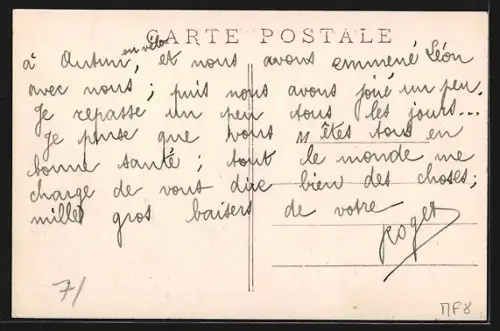 CARTE POSTALE
en vélo
à Autun, et nous avons emmené Léon
avec nous ; puis nous avons joué un peu.
Je repasse un peu tous les jours...
Je pense que vous êtes tous en
bonne santé ; tout le monde me
charge de vous dire bien des choses ;
mille gros baisers de votre
Roger
7/
MF8